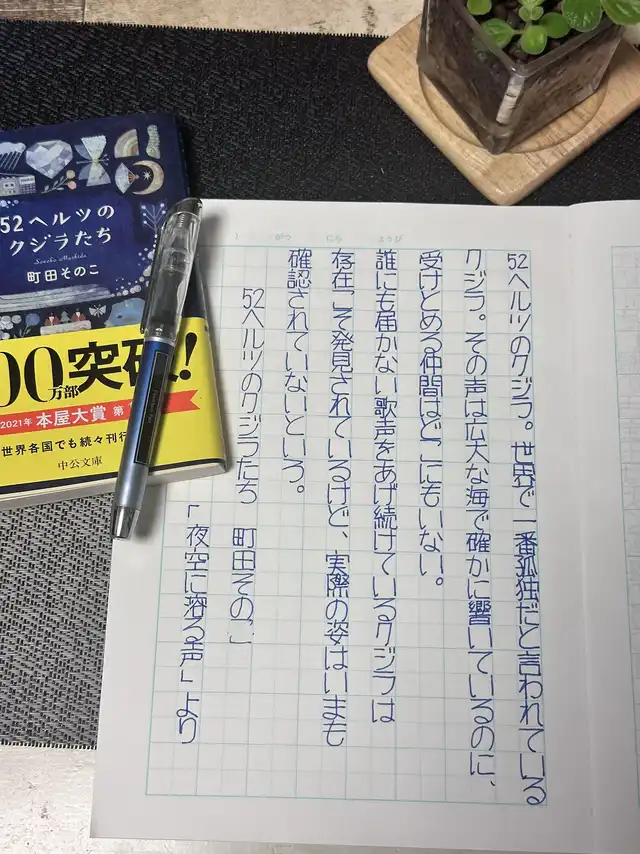 52ヘルツの
クジラたち
Sonoko Machida
町田そのこ
00万部突破!
2021年 本屋大賞 第
世界各国でも続々刊行
中公文庫
がつ にち ようび
52ヘルツのクジラ。世界で一番孤独だと言われている
クジラ。その声は広大な海で確かに響いているのに、
受けとめる仲間はどこにもいない。
誰にも届かない歌声をあげ続けているクジラは
存在こそ発見されているけど、実際の姿はいまも
確認されていないという。
52ヘルツのクジラたち 町田そのこ
「夜空に溶る声」より